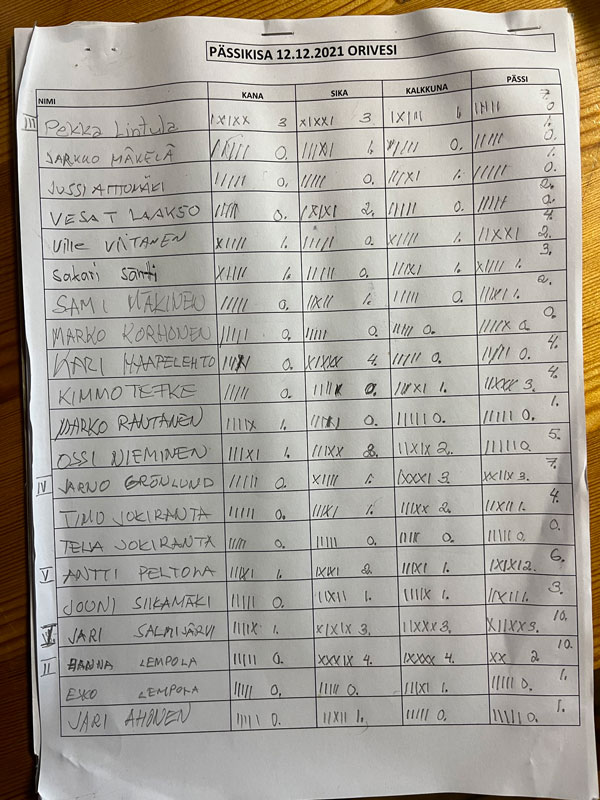 PÄSSIKISA 12.12.2021 ORIVESI
NIMI KANA SIKA KALKKUNA PÄSSI
III Pekka Lintula IXIXX 3 XIXXI 3. IXIII 1. IIIII 0 7.
JARKKO MÄKELÄ IIIII 0. IIIXI 1. IIIII 0. IIIII 0. 1.
JUSSI IIIII 0. IIIII 0. IIIXI 1. IIIII 0. 1.
VESA T LAAKSO IIIII 0. IXIXI 2. IIIII 0. IIIII 0. 2.
Ville VIITANEN XIIII 1. IIIII 0. XIIII 1. IIXXI 2. 4.
Sakari Säntti XIIII 1. IIIII 0. IIIXI 1. XIIII 1. 3.
SAMI MÄKINEN IIIII 0. IIXII 1. IIIII 0. IIIXI 1. 2.
MARKO KORHONEN IIIII 0. IIIII 0. IIII 0. IIIIX 0. 0.
KARI HAAPELEHTO 0. XIXXX 4. IIIII 0. IIIII 0. 4.
KIMMO TEFKE IIIII 0. 0. IIIXI 1. IIXXX 3. 4.
MARKO RANTANEN IIIIX 1. 0. IIIII 0. IIIII 0. 1.
OSSI NIEMINEN IIIXI 1. IIIXX 2. IIXIX 2. IIIIII 0. 5.
IV JARNO GRÖNLUND IIIII 0. XIIII 1. IXXXI 3. XXIIX 3. 7.
TIMO JOKIRANTA IIIII 0. IIIXI 1. IIIXX 2. IIXII 1. 4.
JOKIRANTA IIIII 0. IIIII 0. IIIII 0. IIIII 0. 0.
V ANTTI PELTOLA IIIXI 1. IXIXI 2. IIIXI 1. IXIXI 2. 6.
JOUNI SIIKAMÄKI IIIII 0. IIXII 1. IIIIX 1. IIXIII. 3.
JARI SALMIJÄRVI IIIIX 1. XIXIX 3. IIXXX 3. XIIXX 3. 10.
II HANNA LEMPOLA IIIII 0. XXXIX 4. IXXXX 4. XX 2 10.
ESKO LEMPOLA IIIII 0. IIIII 0. IIIXI 1. IIIII 0. 1.
JARI AHONEN IIIII 0. IIXII 1. IIIII 0. IIIIII 0. 1.